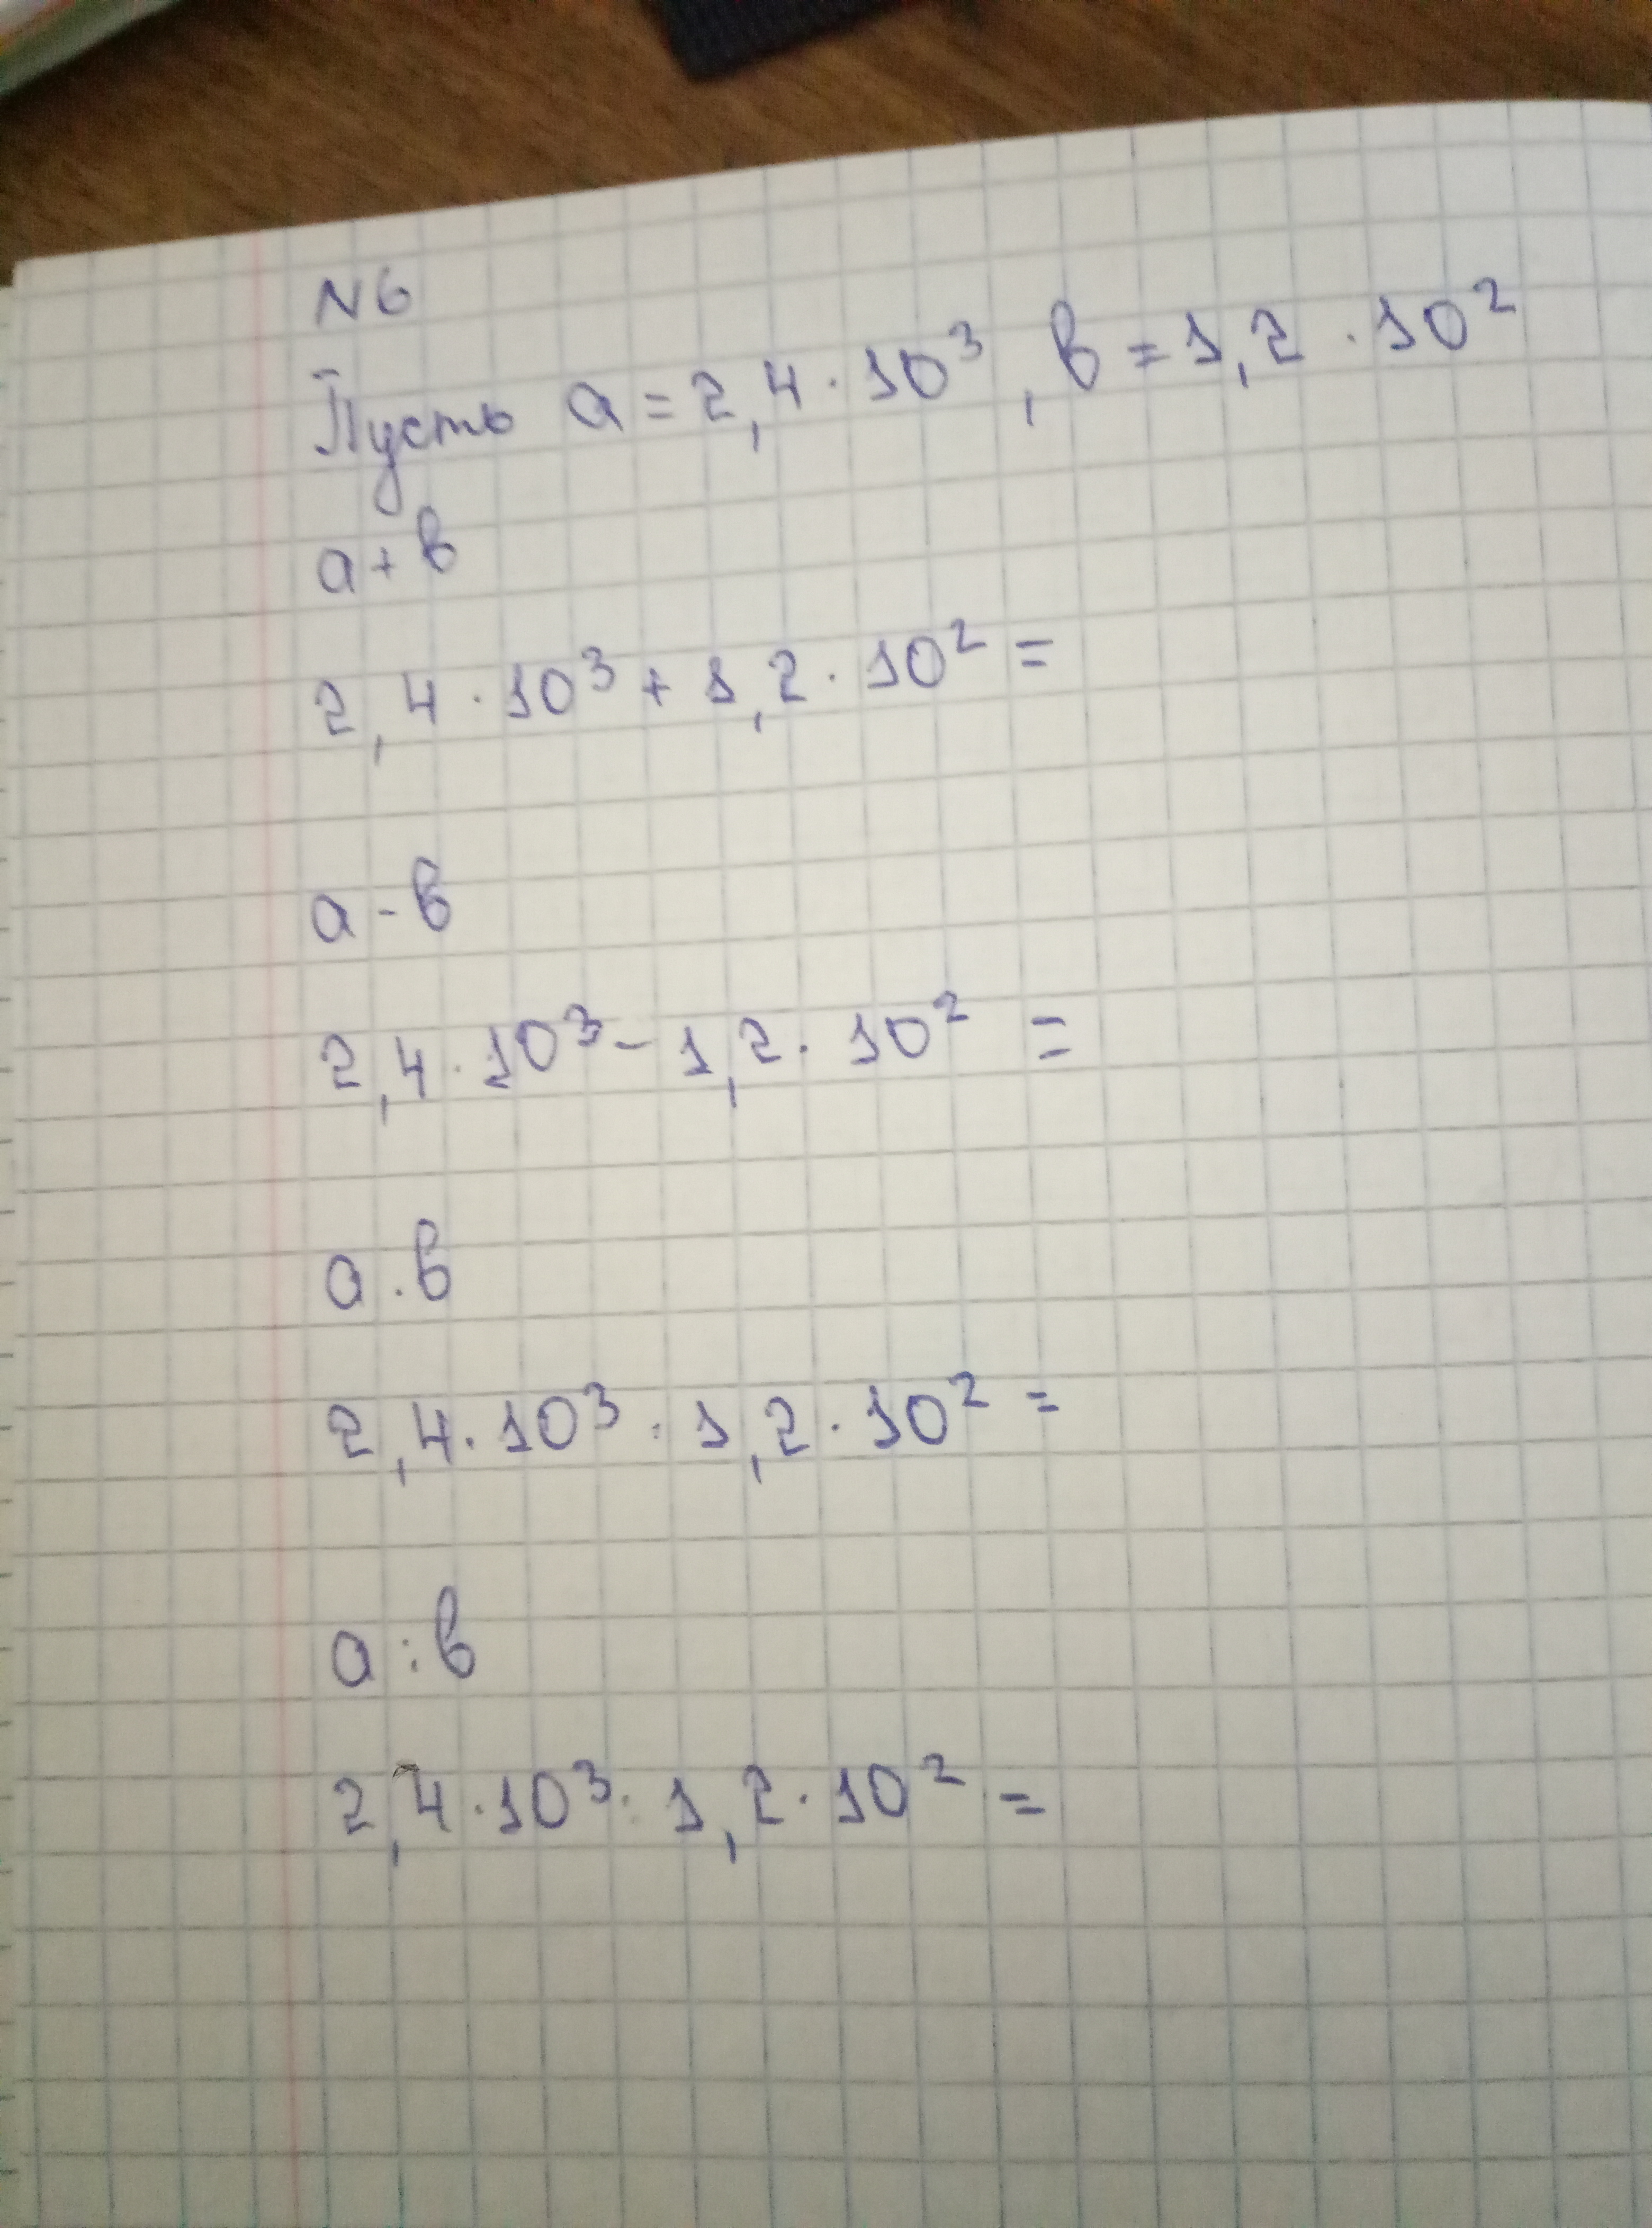 N6
Пусть a = 2,4 · 10³, в = 1,2 · 10²
a + в
2,4 · 10³ + 1,2 · 10² =
a - в
2,4 · 10³ - 1,2 · 10² =
a · в
2,4 · 10³ · 1,2 · 10² =
a : в
2,4 · 10³ : 1,2 · 10² =